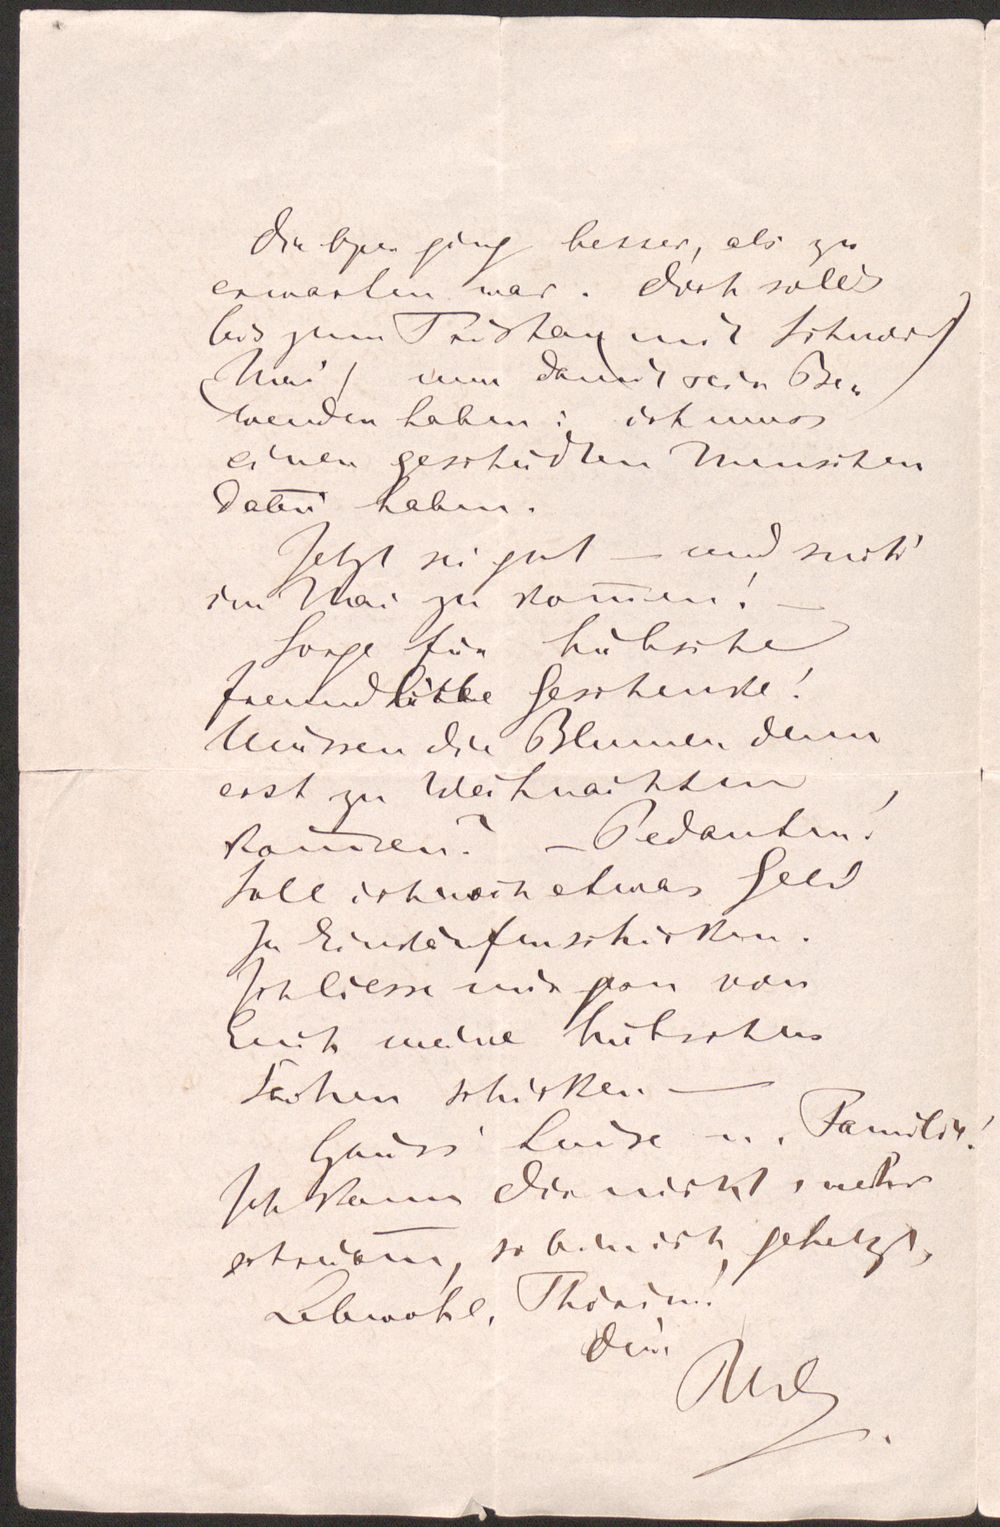 Die Oper ging besser, als zu
erwarten war. Doch soll's
bis zum Tristan mit Schnorr
(Mai) nun damit sein Be-
wenden haben: ich muss
einen gescheidten Menschen
dabei haben.
Jetzt sei gut — und sieh'
im Mai zu kom̄en! —
Sorge für hübsche
freundliche Geschenke!
Müssen die Blumen denn
erst zu Weihnachten
kom̄en? — Pedantin!
Soll ich noch etwas Geld
zu Einkäufen schicken.
Ich liesse mir gern von
Euch meine hübschen
Sachen schicken —
Grüss' Luise u. Familie!
Ich kann Dir nicht mehr
schreiben, so bin ich gehetzt,
Lebwohl, Thörin!
Dein
RW